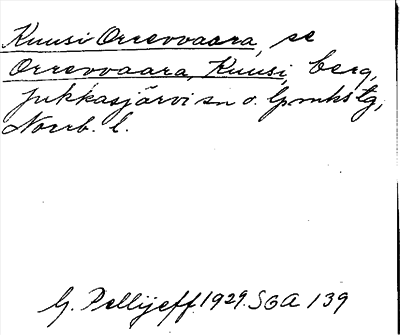 Kuusi Orrevvaara, se
Orrevvaara, Kuusi, berg,
Jukkasjärvi sn o. lpmhstg,
Norrb. l.
G. Pellijeff. 1929. SOA 139